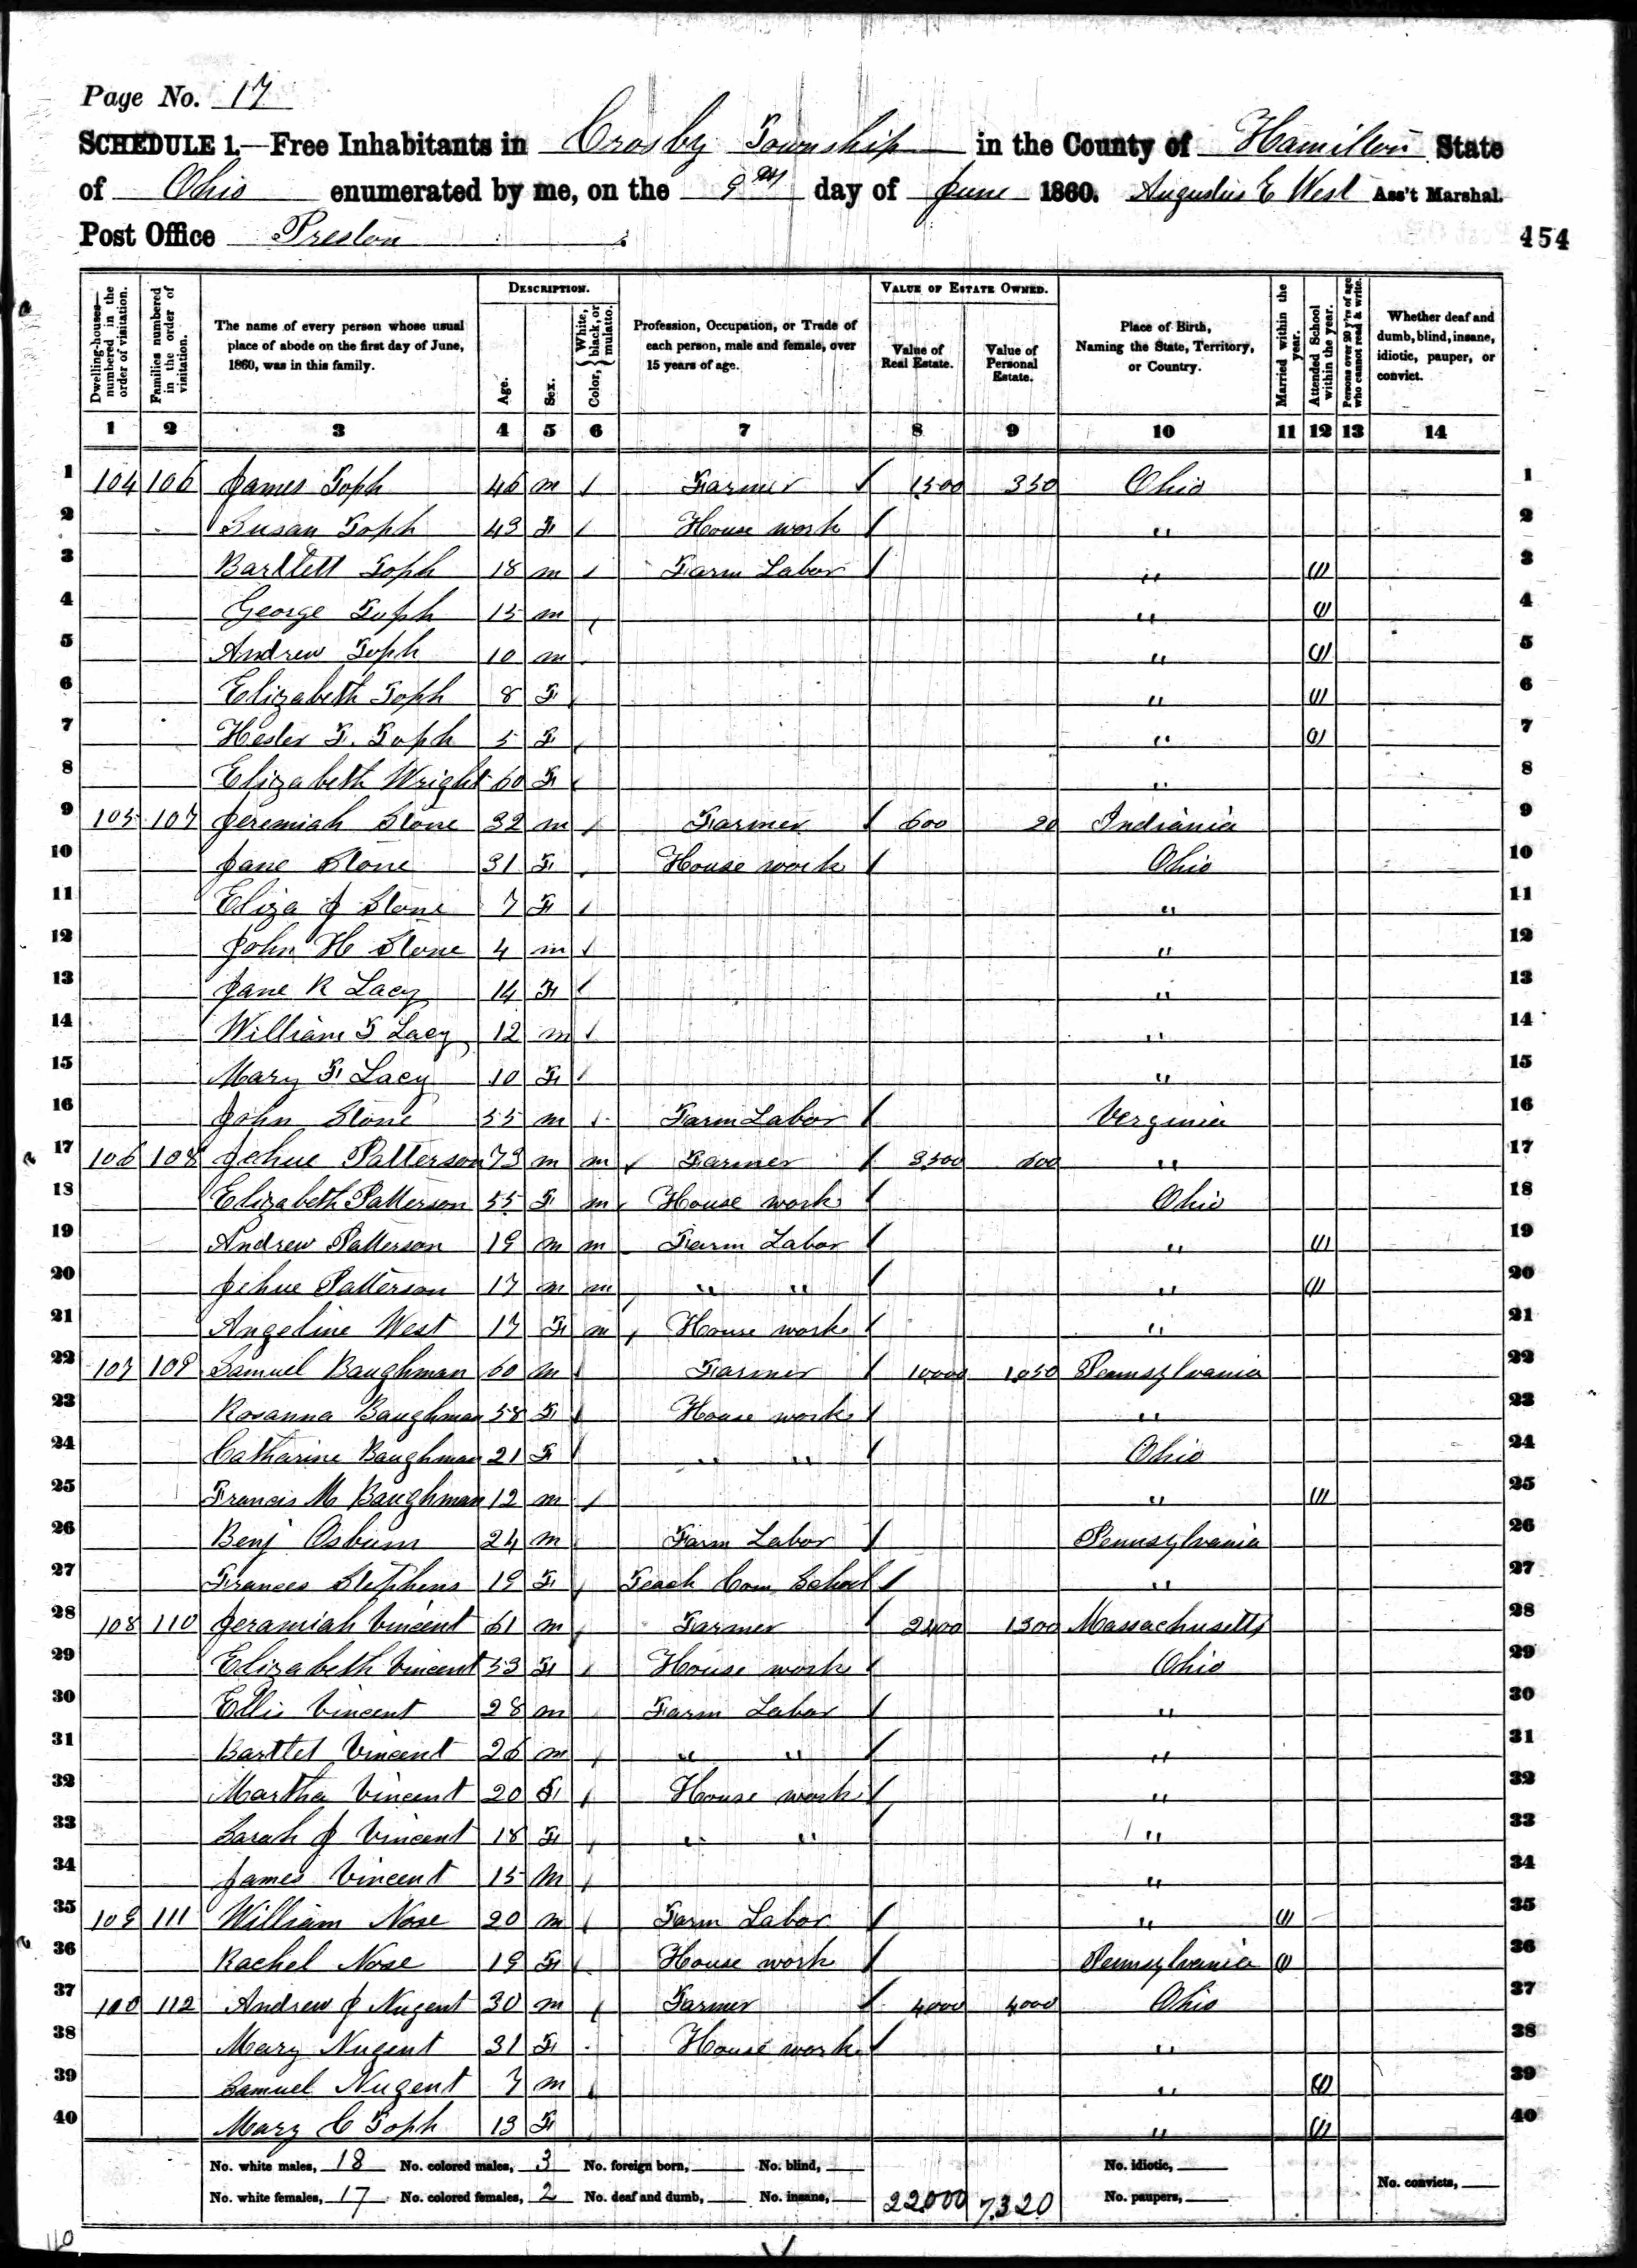 Page No. 17
SCHEDULE 1.—Free Inhabitants in Crosby Township in the County of Hamilton State
of Ohio enumerated by me, on the 9th day of June 1860. Augustus E West Ass't Marshal.
Post Office Preston 454
Dwelling-houses— numbered in the order of visitation.
Families numbered in the order of visitation.
The name of every person whose usual place of abode on the first day of June, 1860, was in this family.
DESCRIPTION.
Age.
Sex.
Color, { White, black, or mulatto.
Profession, Occupation, or Trade of each person, male and female, over 15 years of age.
VALUE OF ESTATE OWNED.
Value of Real Estate.
Value of Personal Estate.
Place of Birth, Naming the State, Territory, or Country.
Married within the year.
Attended School within the year.
Persons over 20 y'rs of age who cannot read & write.
Whether deaf and dumb, blind, insane, idiotic, pauper, or convict.
1 2 3 4 5 6 7 8 9 10 11 12 13 14
1 104 106 James Toph 46 m / Farmer / 1500 350 Ohio 1
2 Susan Toph 43 F / House work / " 2
3 Bartlett Toph 18 m / Farm Labor / " / 3
4 George Toph 15 m / " / 4
5 Andrew Toph 10 m " / 5
6 Elizabeth Toph 8 F / " / 6
7 Hester F. Toph 5 F / " / 7
8 Elizabeth Wright 60 F / " 8
9 105 107 Jeremiah Stone 32 m / Farmer / 600 20 Indiania 9
10 Jane Stone 31 F / House work / Ohio 10
11 Eliza J Stone 7 F / " 11
12 John H Stone 4 m / " 12
13 Jane R Lacy 14 F / " 13
14 William T Lacy 12 m / " 14
15 Mary F Lacy 10 F / " 15
16 John Stone 55 m / Farm Labor / Verginia 16
17 106 108 Jehue Patterson 73 m m / Farmer / 3500 " 17
18 Elizabeth Patterson 55 F m / House work / Ohio 18
19 Andrew Patterson 19 m m Farm Labor / " / 19
20 Jehue Patterson 17 m m / " " / " / 20
21 Angeline West 17 F m / House work / " 21
22 107 109 Samuel Baughman 60 m / Farmer / 10000 1050 Pennsylvania 22
23 Rosanna Baughman 58 F / House work / " 23
24 Catharine Baughman 21 F / " " / Ohio 24
25 Francis M Baughman 12 m / " / 25
26 Benj Osburn 24 m Farm Labor / Pennsylvania 26
27 Frances Stephens 19 F / Teach Com School / " 27
28 108 110 Jeramiah Vincent 61 m / Farmer / 2400 1300 Massachusetts 28
29 Elizabeth Vincent 53 F / House work / Ohio 29
30 Ellis Vincent 28 m Farm Labor / " 30
31 Barttet Vincent 26 m / " " / " 31
32 Martha Vincent 20 F / House work / " 32
33 Sarah J Vincent 18 F / " " / " 33
34 James Vincent 15 m / " 34
35 109 111 William Nose 20 m / Farm Labor / " / 35
36 Rachel Nose 19 F / House work / Pennsylvania / 36
37 112 Andrew J Nugent 30 m / Farmer / 4000 4000 Ohio 37
38 Mary Nugent 31 F House work / " 38
39 Samuel Nugent 7 m / " / 39
40 Mary C Toph 13 F " / 40
No. white males, 18 No. colored males, 3 No. foreign born, No. blind, No. idiotic,
No. white females, 17 No. colored females, 2 No. deaf and dumb, No. insane, 22000 7320 No. paupers, No. convicts,
110